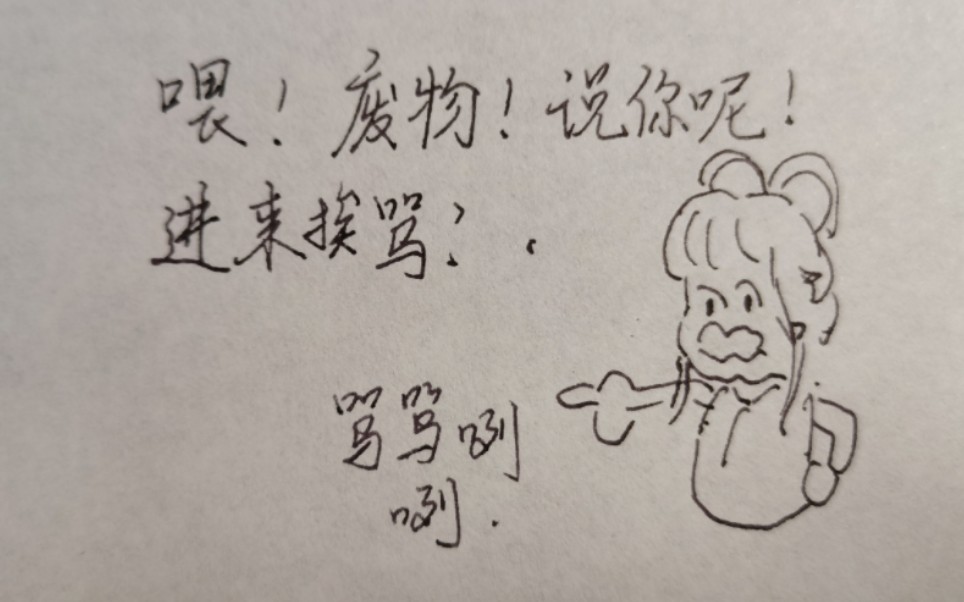 喂！废物！说你呢！
进来挨骂？.
骂骂咧
咧.